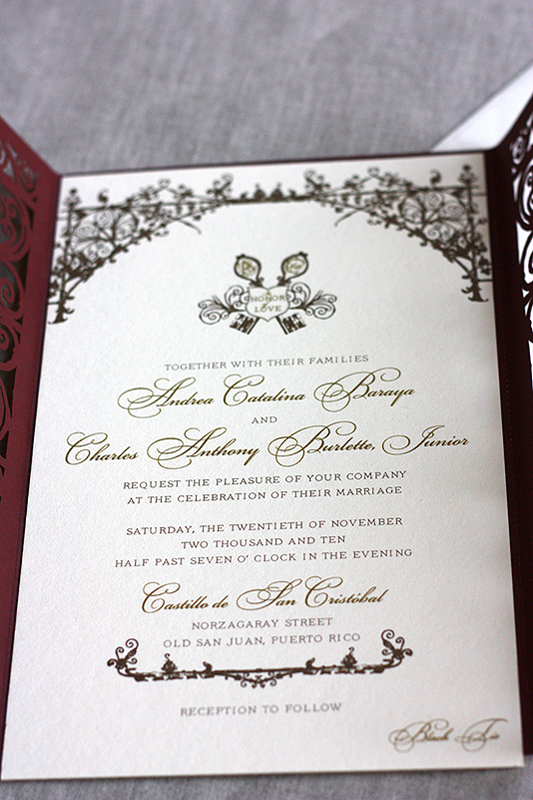 HONOR
LOVE
TOGETHER WITH THEIR FAMILIES
Andrea Catalina Baraya
AND
Charles Anthony Burlette, Junior
REQUEST THE PLEASURE OF YOUR COMPANY
AT THE CELEBRATION OF THEIR MARRIAGE
SATURDAY, THE TWENTIETH OF NOVEMBER
TWO THOUSAND AND TEN
HALF PAST SEVEN O' CLOCK IN THE EVENING
Castillo de San Cristóbal
NORZAGARAY STREET
OLD SAN JUAN, PUERTO RICO
RECEPTION TO FOLLOW
Black Tie